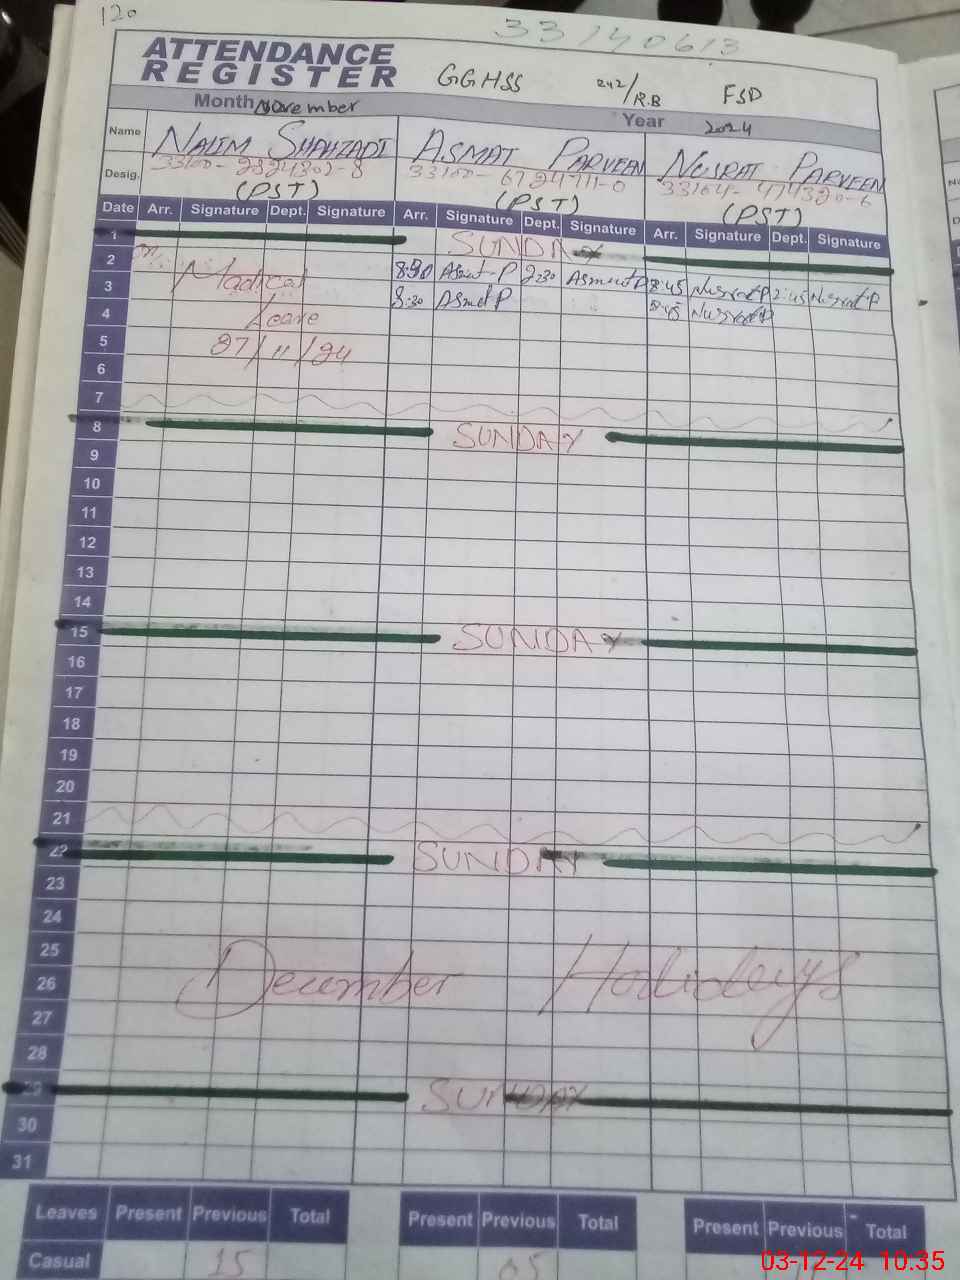 120
33140613
ATTENDANCE
REGISTER
GGHSS 242/R.B FSD
Month November Year 2024
Name NALIM SHAHZADI ASMAT PARVEEN NUSRAT PARVEEN
Desig. 33100-2824302-8 33100-6724711-0 33104-4714320-6
(PST) (PST) (PST)
Date Arr. Signature Dept. Signature Arr. Signature Dept. Signature Arr. Signature Dept. Signature
1 SUNDAY
2 8:30 Asmat-P 2:30 Asmat P 8:45 Nusrat P 2:45 Nusrat P
3 Madical 8:30 Asmat P 8:45 Nusrat P
4 Leave
5 27/11/24
6
7
8 SUNDAY
9
10
11
12
13
14
15 SUNDAY
16
17
18
19
20
21
22 SUNDAY
23
24
25
26 December Holidays
27
28
29 SUNDAY
30
31
Leaves Present Previous Total Present Previous Total Present Previous Total
Casual 15 05
03-12-24 10:35